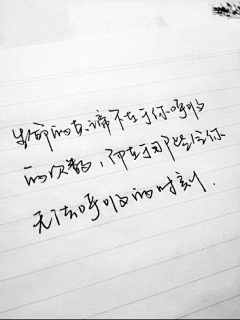 生命的真谛不在于你呼吸
的次数，而在于那些令你
无法呼吸的时刻.